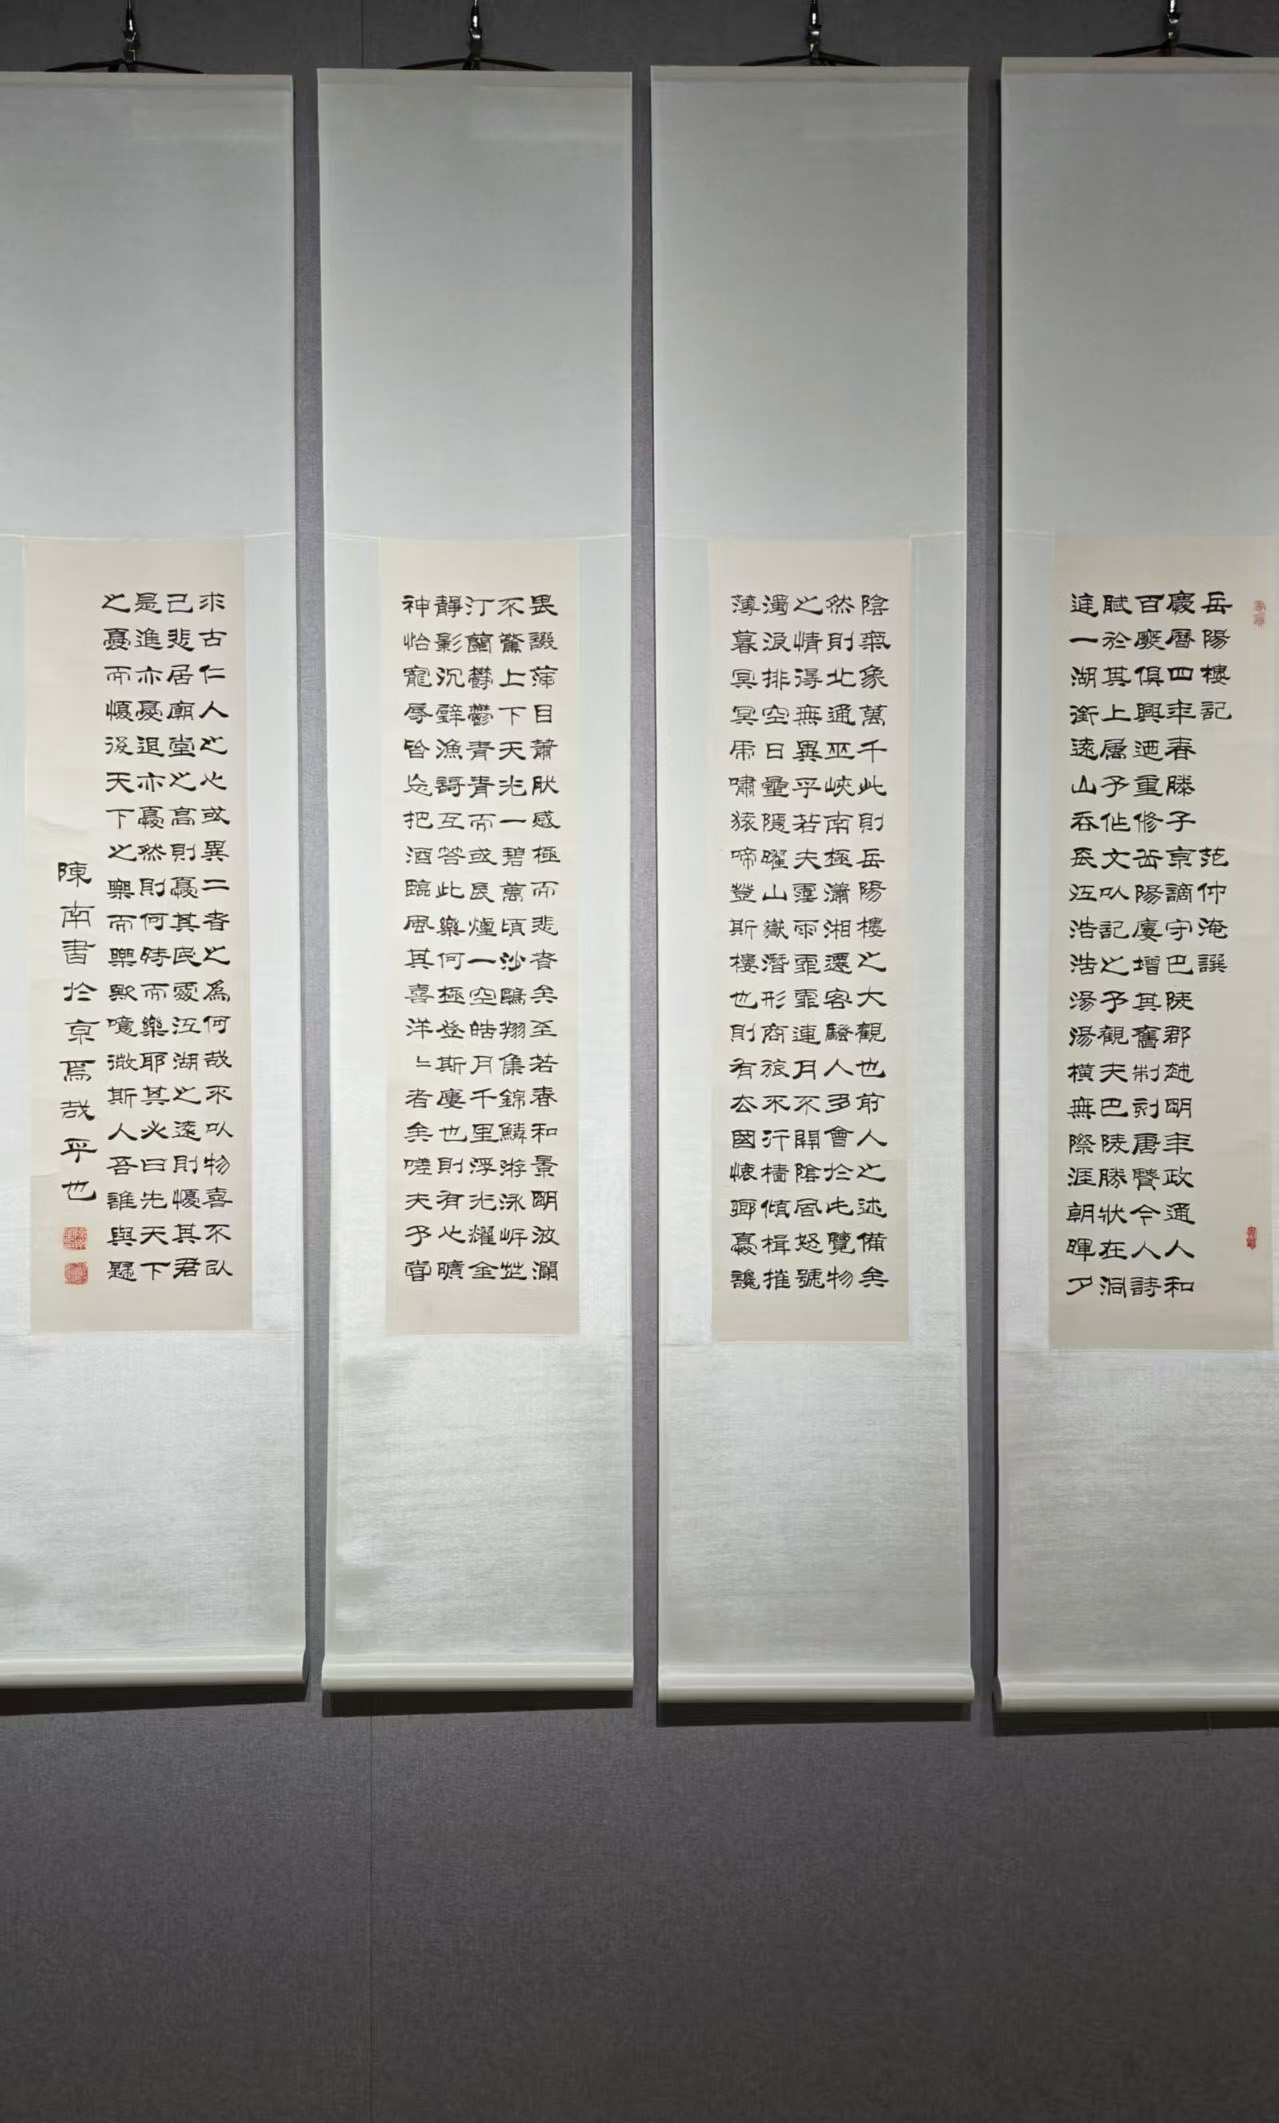 岳陽樓記 范仲淹譔
慶曆四年春滕子京謫守巴陵郡越明年政通人和
百廢俱興迺重修岳陽廔增其舊制刻唐賢今人詩
賦於其上屬予作文以記之予觀夫巴陵勝狀在洞
庭一湖銜遠山吞長江浩浩湯湯橫無際涯朝暉夕
陰氣象萬千此則岳陽樓之大觀也前人之述備矣
然則北通巫峽南極瀟湘遷客騷人多會於此覽物
之情得無異乎若夫霪雨霏霏連月不開陰風怒號
濁浪排空日星隱曜山嶽潛形商旅不行檣傾楫摧
薄暮冥冥虎嘯猿啼登斯樓也則有去國懷鄉憂讒
畏譏滿目蕭然感極而悲者矣至若春和景明波瀾
不驚上下天光一碧萬頃沙鷗翔集錦鱗游泳岸芷
汀蘭鬱鬱青青而或長煙一空皓月千里浮光耀金
靜影沉璧漁謌互答此樂何極登斯廔也則有心曠
神怡寵辱皆忘把酒臨風其喜洋〻者矣嗟夫予嘗
求古仁人之心或異二者之為何哉不以物喜不以
己悲居廟堂之高則憂其民處江湖之遠則懮其君
是進亦憂退亦憂然則何時而樂耶其必曰先天下
之憂而懮後天下之樂而樂歟噫微斯人吾誰與歸
陳南書於京焉哉乎也